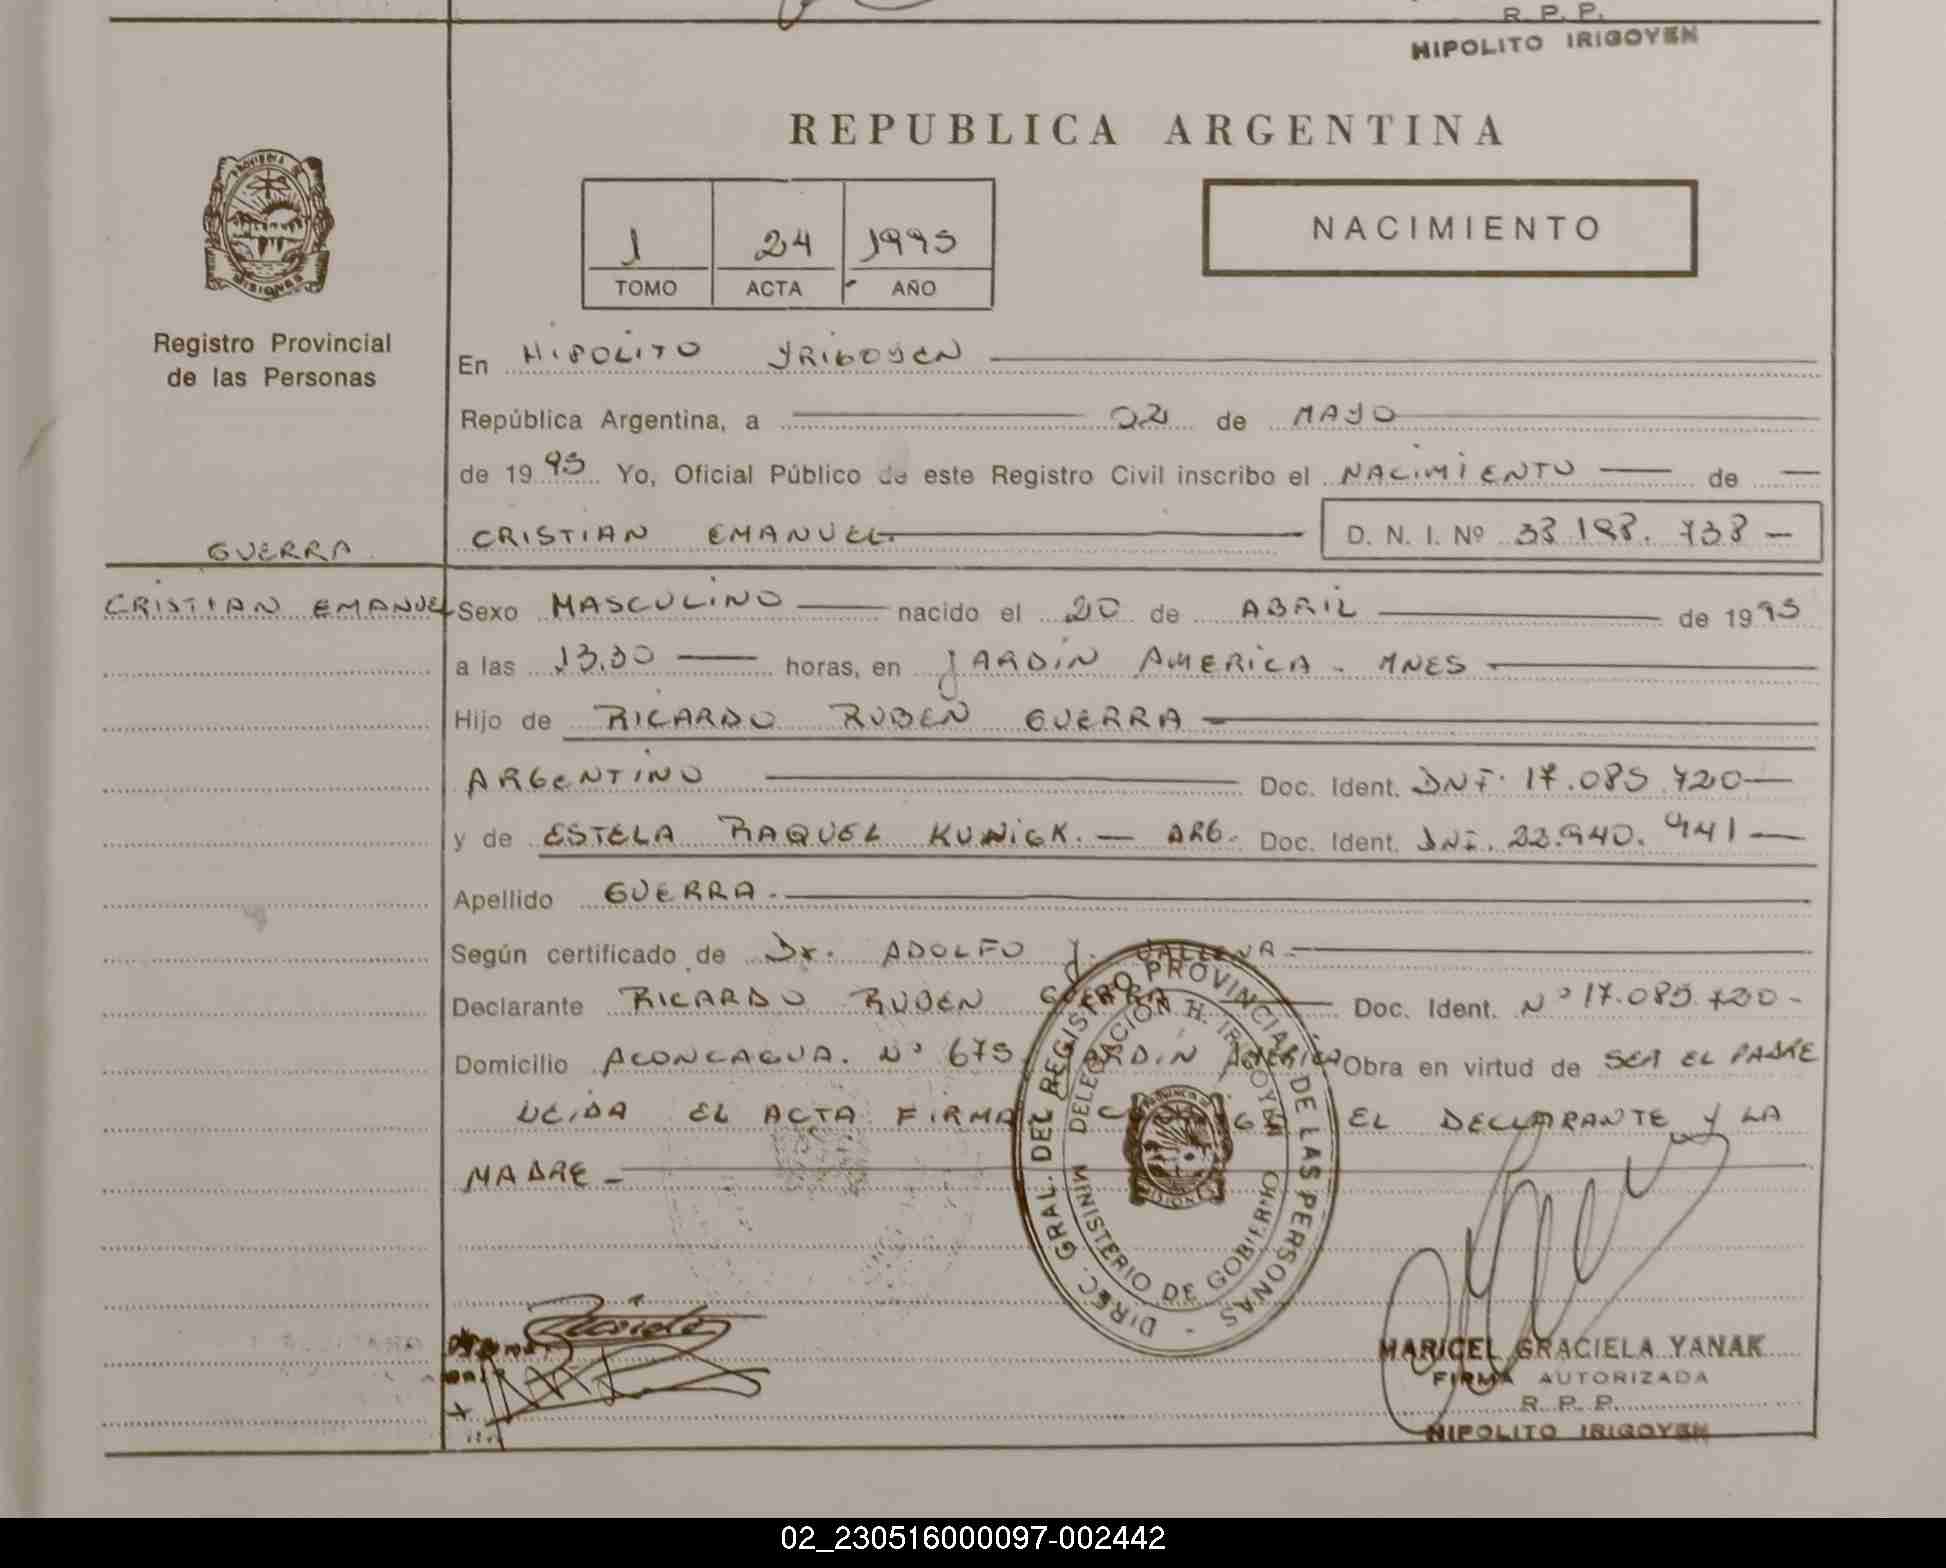 R. P. P.
HIPOLITO IRIGOYEN
REPUBLICA ARGENTINA
PROVINCIA
MISIONES
1 24 1995
TOMO ACTA AÑO
NACIMIENTO
Registro Provincial
de las Personas
En HIPOLITO YRIGOYEN
República Argentina, a 02 de MAYO
de 19 95 Yo, Oficial Público de este Registro Civil inscribo el NACIMIENTO de
GUERRA
CRISTIAN EMANUEL D. N. I. Nº 38.198.738
CRISTIAN EMANUEL
Sexo MASCULINO nacido el 20 de ABRIL de 19 95
a las 13.30 horas, en JARDIN AMERICA - MNES
Hijo de RICARDO RUBEN GUERRA
ARGENTINO Doc. Ident. DNI. 17.085.720
y de ESTELA RAQUEL KUNIGK. ARG. Doc. Ident. DNI. 22.940.941
Apellido GUERRA.
Según certificado de Dr. ADOLFO J.
Declarante RICARDO RUBEN GUERRA Doc. Ident. Nº 17.085.720-
Domicilio ACONCAGUA. Nº 675 JARDIN AMERICA Obra en virtud de SER EL PADRE
LEIDA EL ACTA FIRMA EL DECLARANTE Y LA
MADRE
DIREC. GRAL. DEL REGISTRO PROVINCIAL DE LAS PERSONAS -
DELEGACIÓN H. IRIGOYEN
MINISTERIO DE GOBIERNO
MISIONES
MARICEL GRACIELA YANAK
FIRMA AUTORIZADA
R. P. P.
HIPOLITO IRIGOYEN
02_230516000097-002442